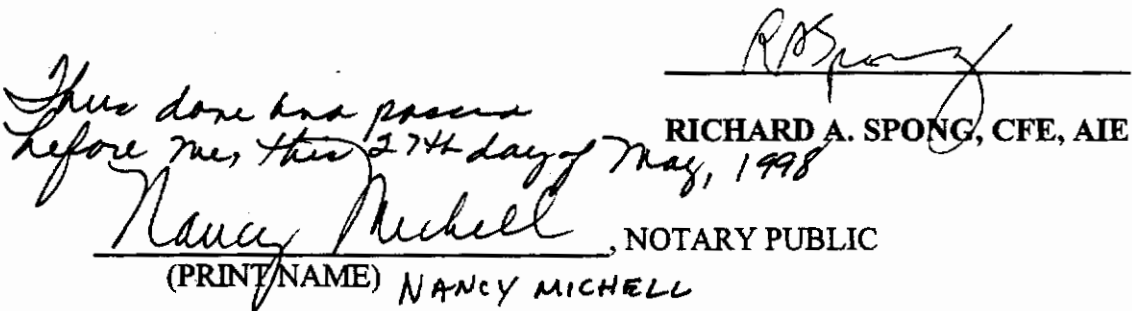 RASpong
RICHARD A. SPONG, CFE, AIE
Thus done and passed
before me, this 27th day of May, 1998
Nancy Michell, NOTARY PUBLIC
(PRINT NAME) NANCY MICHELL